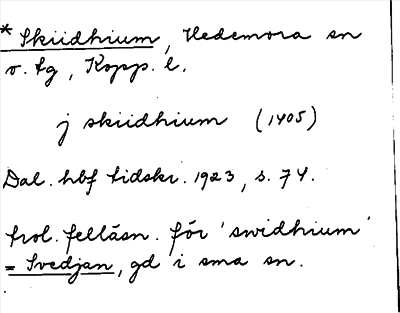 * Skiidhium, Hedemora sn
v. tg, Kopp. l.
j skiidhium (1405)
Dal. hbf tidskr. 1923, s. 74.
trol. felläsn. för 'swidhium'
= Svedjan, gd i sma sn.